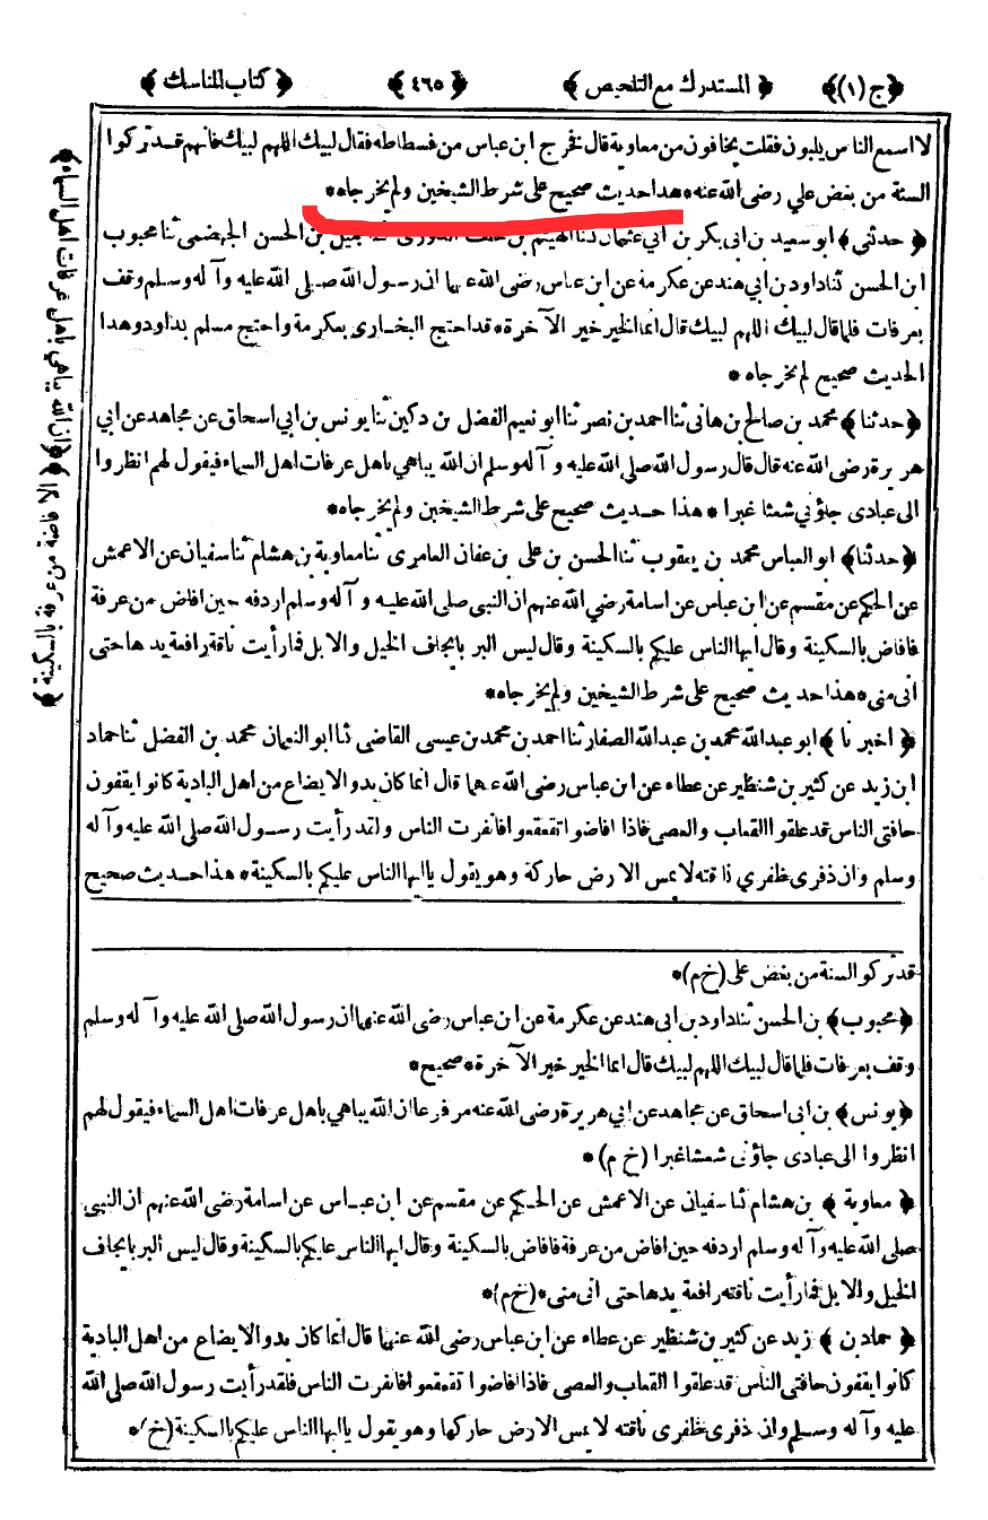 ﴿ ج (١) ﴾ ﴿ المستدرك مع التلخيص ﴾ ﴿ ٤٦٥ ﴾ ﴿ كتاب المناسك ﴾
لا اسمع الناس يلبون فقلت يخافون من معاوية قال فخرج ابن عباس من فسطاطه فقال لبيك اللهم لبيك فانهم قد تركوا
السنة من بغض علي رضى الله عنه * هذا حديث صحيح على شرط الشيخين ولم يخرجاه *
﴿ حدثنى ﴾ ابو سعيد بن ابى بكر بن ابي عثمان ثنا الهيثم بن خلف الدورى ثنا جميل بن الحسن الجهضمى ثنا محبوب
ابن الحسن ثنا داود بن ابي هند عن عكرمة عن ابن عباس رضى الله عنهما ان رسول الله صلى الله عليه وآله وسلم وقف
بعرفات فلما قال لبيك اللهم لبيك قال انما الخير خير الآخرة * قد احتج البخارى بعكرمة واحتج مسلم بداود وهذا
الحديث صحيح لم يخرجاه *
﴿ حدثنا ﴾ محمد بن صالح بن هانى ثنا احمد بن نصر ثنا ابو نعيم الفضل بن دكين ثنا يونس بن ابي اسحاق عن مجاهد عن ابي
هريرة رضى الله عنه قال قال رسول الله صلى الله عليه وآله وسلم ان الله يباهي باهل عرفات اهل السماء فيقول لهم انظروا
الى عبادى جاؤني شعثا غبرا * هذا حديث صحيح على شرط الشيخين ولم يخرجاه *
﴿ حدثنا ﴾ ابو العباس محمد بن يعقوب ثنا الحسن بن على بن عفان العامرى ثنا معاوية بن هشام ثنا سفيان عن الاعمش
عن الحكم عن مقسم عن ابن عباس عن اسامة رضي الله عنهم ان النبى صلى الله عليه وآله وسلم اردفه حين افاض من عرفة
فافاض بالسكينة وقال ايها الناس عليكم بالسكينة وقال ليس البر بايجاف الخيل والابل فمارأيت ناقة رافعة يدها حتى
اتى منى * هذا حديث صحيح على شرط الشيخين ولم يخرجاه *
﴿ اخبرنا ﴾ ابو عبد الله محمد بن عبد الله الصفار ثنا احمد بن محمد بن عيسى القاضي ثنا ابو النعمان محمد بن الفضل ثنا حماد
ابن زيد عن كثير بن شنظير عن عطاء عن ابن عباس رضى الله عنهما قال انما كان بدو الايضاع من اهل البادية كانوا يقفون
حافتى الناس قد علقوا القعاب والعصى فاذا افاضوا تقعقعوا فانفرت الناس ولقد رأيت رسول الله صلى الله عليه وآله
وسلم وان ذفرى ظفري ناقته لا يمس الارض حاركة وهو يقول ياايها الناس عليكم بالسكينة * هذا حديث صحيح
قد تركوا السنة من بغض على (خ م) *
﴿ محبوب ﴾ بن الحسن ثنا داود بن ابى هند عن عكرمة عن ابن عباس رضى الله عنهما ان رسول الله صلى الله عليه وآله وسلم
وقف بعرفات فلما قال لبيك اللهم لبيك قال انما الخير خير الآخرة * صحيح *
﴿ يونس ﴾ بن ابى اسحاق عن مجاهد عن ابي هريرة رضى الله عنه مرفوعا ان الله يباهي باهل عرفات اهل السماء فيقول لهم
انظروا الى عبادى جاؤنى شعثا غبرا (خ م) *
﴿ معاوية ﴾ بن هشام ثنا سفيان عن الاعمش عن الحكم عن مقسم عن ابن عباس عن اسامة رضى الله عنهم ان النبى
صلى الله عليه وآله وسلم اردفه حين افاض من عرفة فافاض بالسكينة وقال ايها الناس عليكم بالسكينة وقال ليس البر بايجاف
الخيل والابل فمارأيت ناقته رافعة يدها حتى اتى منى * (خ م) *
﴿ حماد بن ﴾ زيد عن كثير بن شنظير عن عطاء عن ابن عباس رضى الله عنهما قال انما كان بدو الايضاع من اهل البادية
كانوا يقفون حافتى الناس قد علقوا القعاب والعصى فاذا افاضوا تقعقعوا فانفرت الناس فلقد رأيت رسول الله صلى الله
عليه وآله وسلم وان ذفرى ظفرى ناقته لا يمس الارض حاركها وهو يقول ياايها الناس عليكم بالسكينة (خ) *
﴿ ان الله يباهي باهل عرفات اهل السماء ﴾
﴿ الافاضة من عرفة بالسكينة ﴾